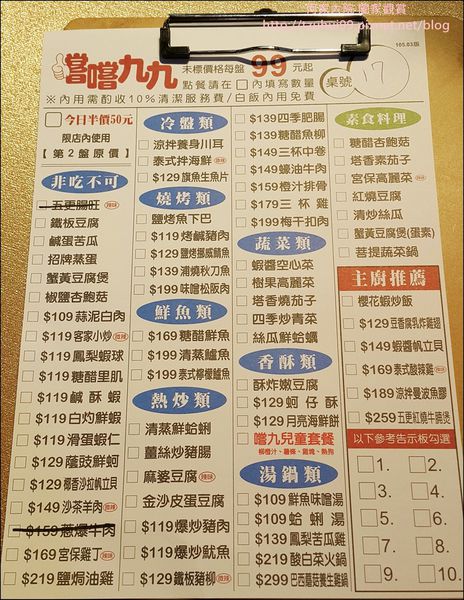 嚐嚐九九
未標價格每盤 99 元起
點餐請在□內填寫數量
桌號 17
105.03版
※內用需酌收10%清潔服務費/白飯內用免費
今日半價50元
限店內使用
【第2盤原價】
非吃不可
五更腸旺 辣味
鐵板豆腐
鹹蛋苦瓜
招牌蒸蛋
蟹黃豆腐煲
椒鹽杏鮑菇
$109 蒜泥白肉
$119 客家小炒 微辣
$119 鳳梨蝦球
$119 糖醋里肌
$119 鹹酥蝦
$119 白灼鮮蝦
$119 滑蛋蝦仁
$129 蔭豉鮮蚵
$129 椰香沙拉帆立貝
$149 沙茶羊肉 微辣
$159 蔥爆牛肉
$169 宮保雞丁 辣味
$219 鹽焗油雞
冷盤類
涼拌養身川耳
泰式拌海鮮 微辣
$129 旗魚生魚片
燒烤類
鹽烤魚下巴
$119 烤鹹豬肉
$129 鹽烤挪威鯖魚
$139 浦燒秋刀魚
$199 味噌松阪肉
鮮魚類
$169 糖醋鮮魚
$199 清蒸鱸魚
$199 泰式檸檬鱸魚
熱炒類
清蒸鮮蛤蜊
薑絲炒豬腸
麻婆豆腐 辣味
金沙皮蛋豆腐
$119 爆炒豬肉
$119 爆炒魷魚
$129 鐵板豬柳 微辣
$139 四季肥腸
$139 糖醋魚柳
$149 三杯中卷
$149 蠔油牛肉
$159 橙汁排骨
$179 三杯雞
$199 梅干扣肉
蔬菜類
蝦醬空心菜
樹果高麗菜
塔香燒茄子
四季炒青菜
絲瓜鮮蛤蠣
香酥類
酥炸嫩豆腐
$129 蚵仔酥
$129 月亮海鮮餅
嚐九兒童套餐
柳橙汁、薯條、雞塊、熱狗
湯鍋類
$109 鮮魚味噌湯
$109 蛤蜊湯
$139 鳳梨苦瓜雞
$219 酸白菜火鍋
$299 巴西蘑菇養生雞鍋
素食料理
糖醋杏鮑菇
塔香素茄子
宮保高麗菜 辣味
紅燒豆腐
清炒絲瓜
蟹黃豆腐煲(蛋素)
菩提蔬菜鍋
主廚推薦
櫻花蝦炒飯
$129 豆香腐乳炸雞翅
$149 蝦醬帆立貝
$169 泰式酸辣雞 辣味
$189 涼拌曼波魚膠
$259 五更紅蟳牛腩煲
以下參考告示板勾選
1. 2.
3. 4.
5. 6.
7. 8.
9. 10.